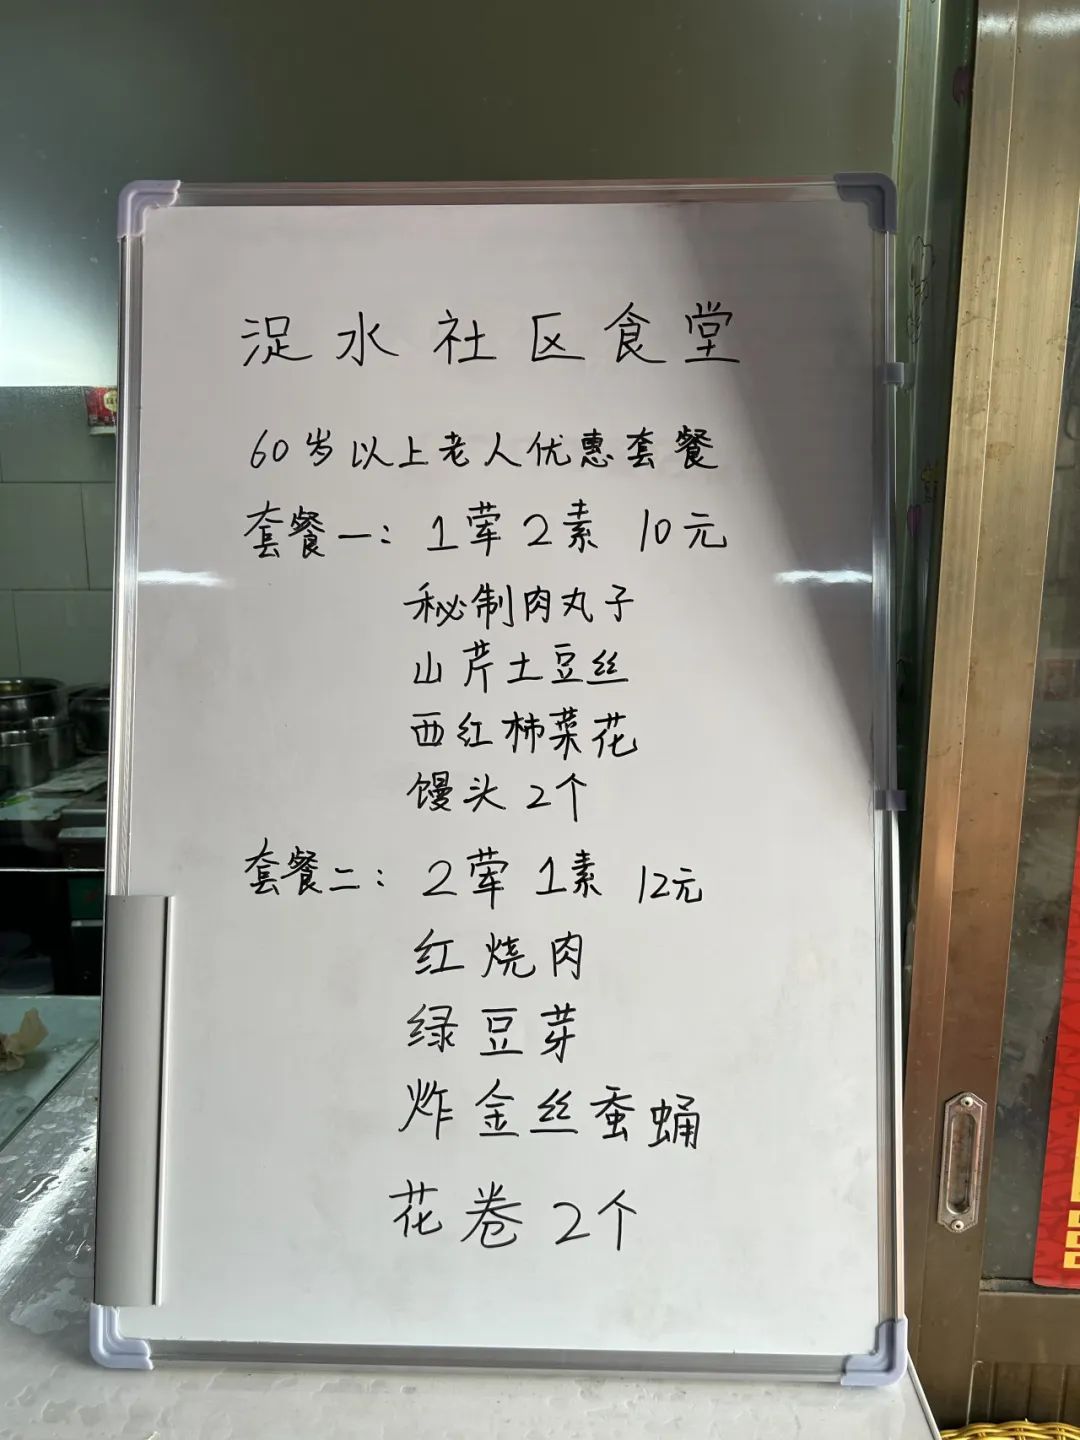 浞水社区食堂
60岁以上老人优惠套餐
套餐一：1荤2素 10元
秘制肉丸子
山芹土豆丝
西红柿菜花
馒头2个
套餐二：2荤1素 12元
红烧肉
绿豆芽
炸金丝蚕蛹
花卷2个